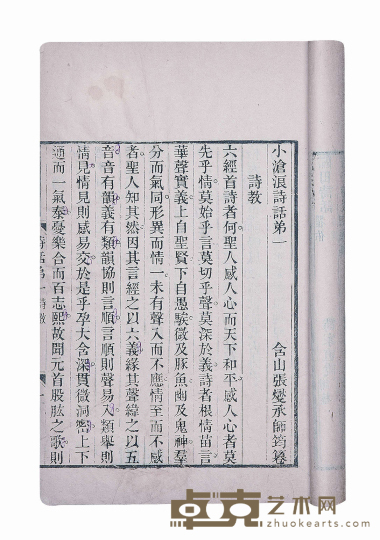 小滄浪詩話弟一
含山張燮承師筠纂
詩教
六經首詩者何聖人感人心而天下和平感人心者莫
先乎情莫始乎言莫切乎聲莫深於義詩者根情苗言
華聲實義上自聖賢下自愚騃微及豚魚幽及鬼神羣
分而氣同形異而情一未有聲入而不應情至而不感
者聖人知其然因其言經之以六義緣其聲緯之以五
音音有韻義有類韻協則言順言順則聲易入類舉則
情見情見則感易交於是乎孕大含深貫微洞密上下
通而一氣泰憂樂合而百志熙故聞元首股肱之歌則
卓克艺术网
zhuokearts.com